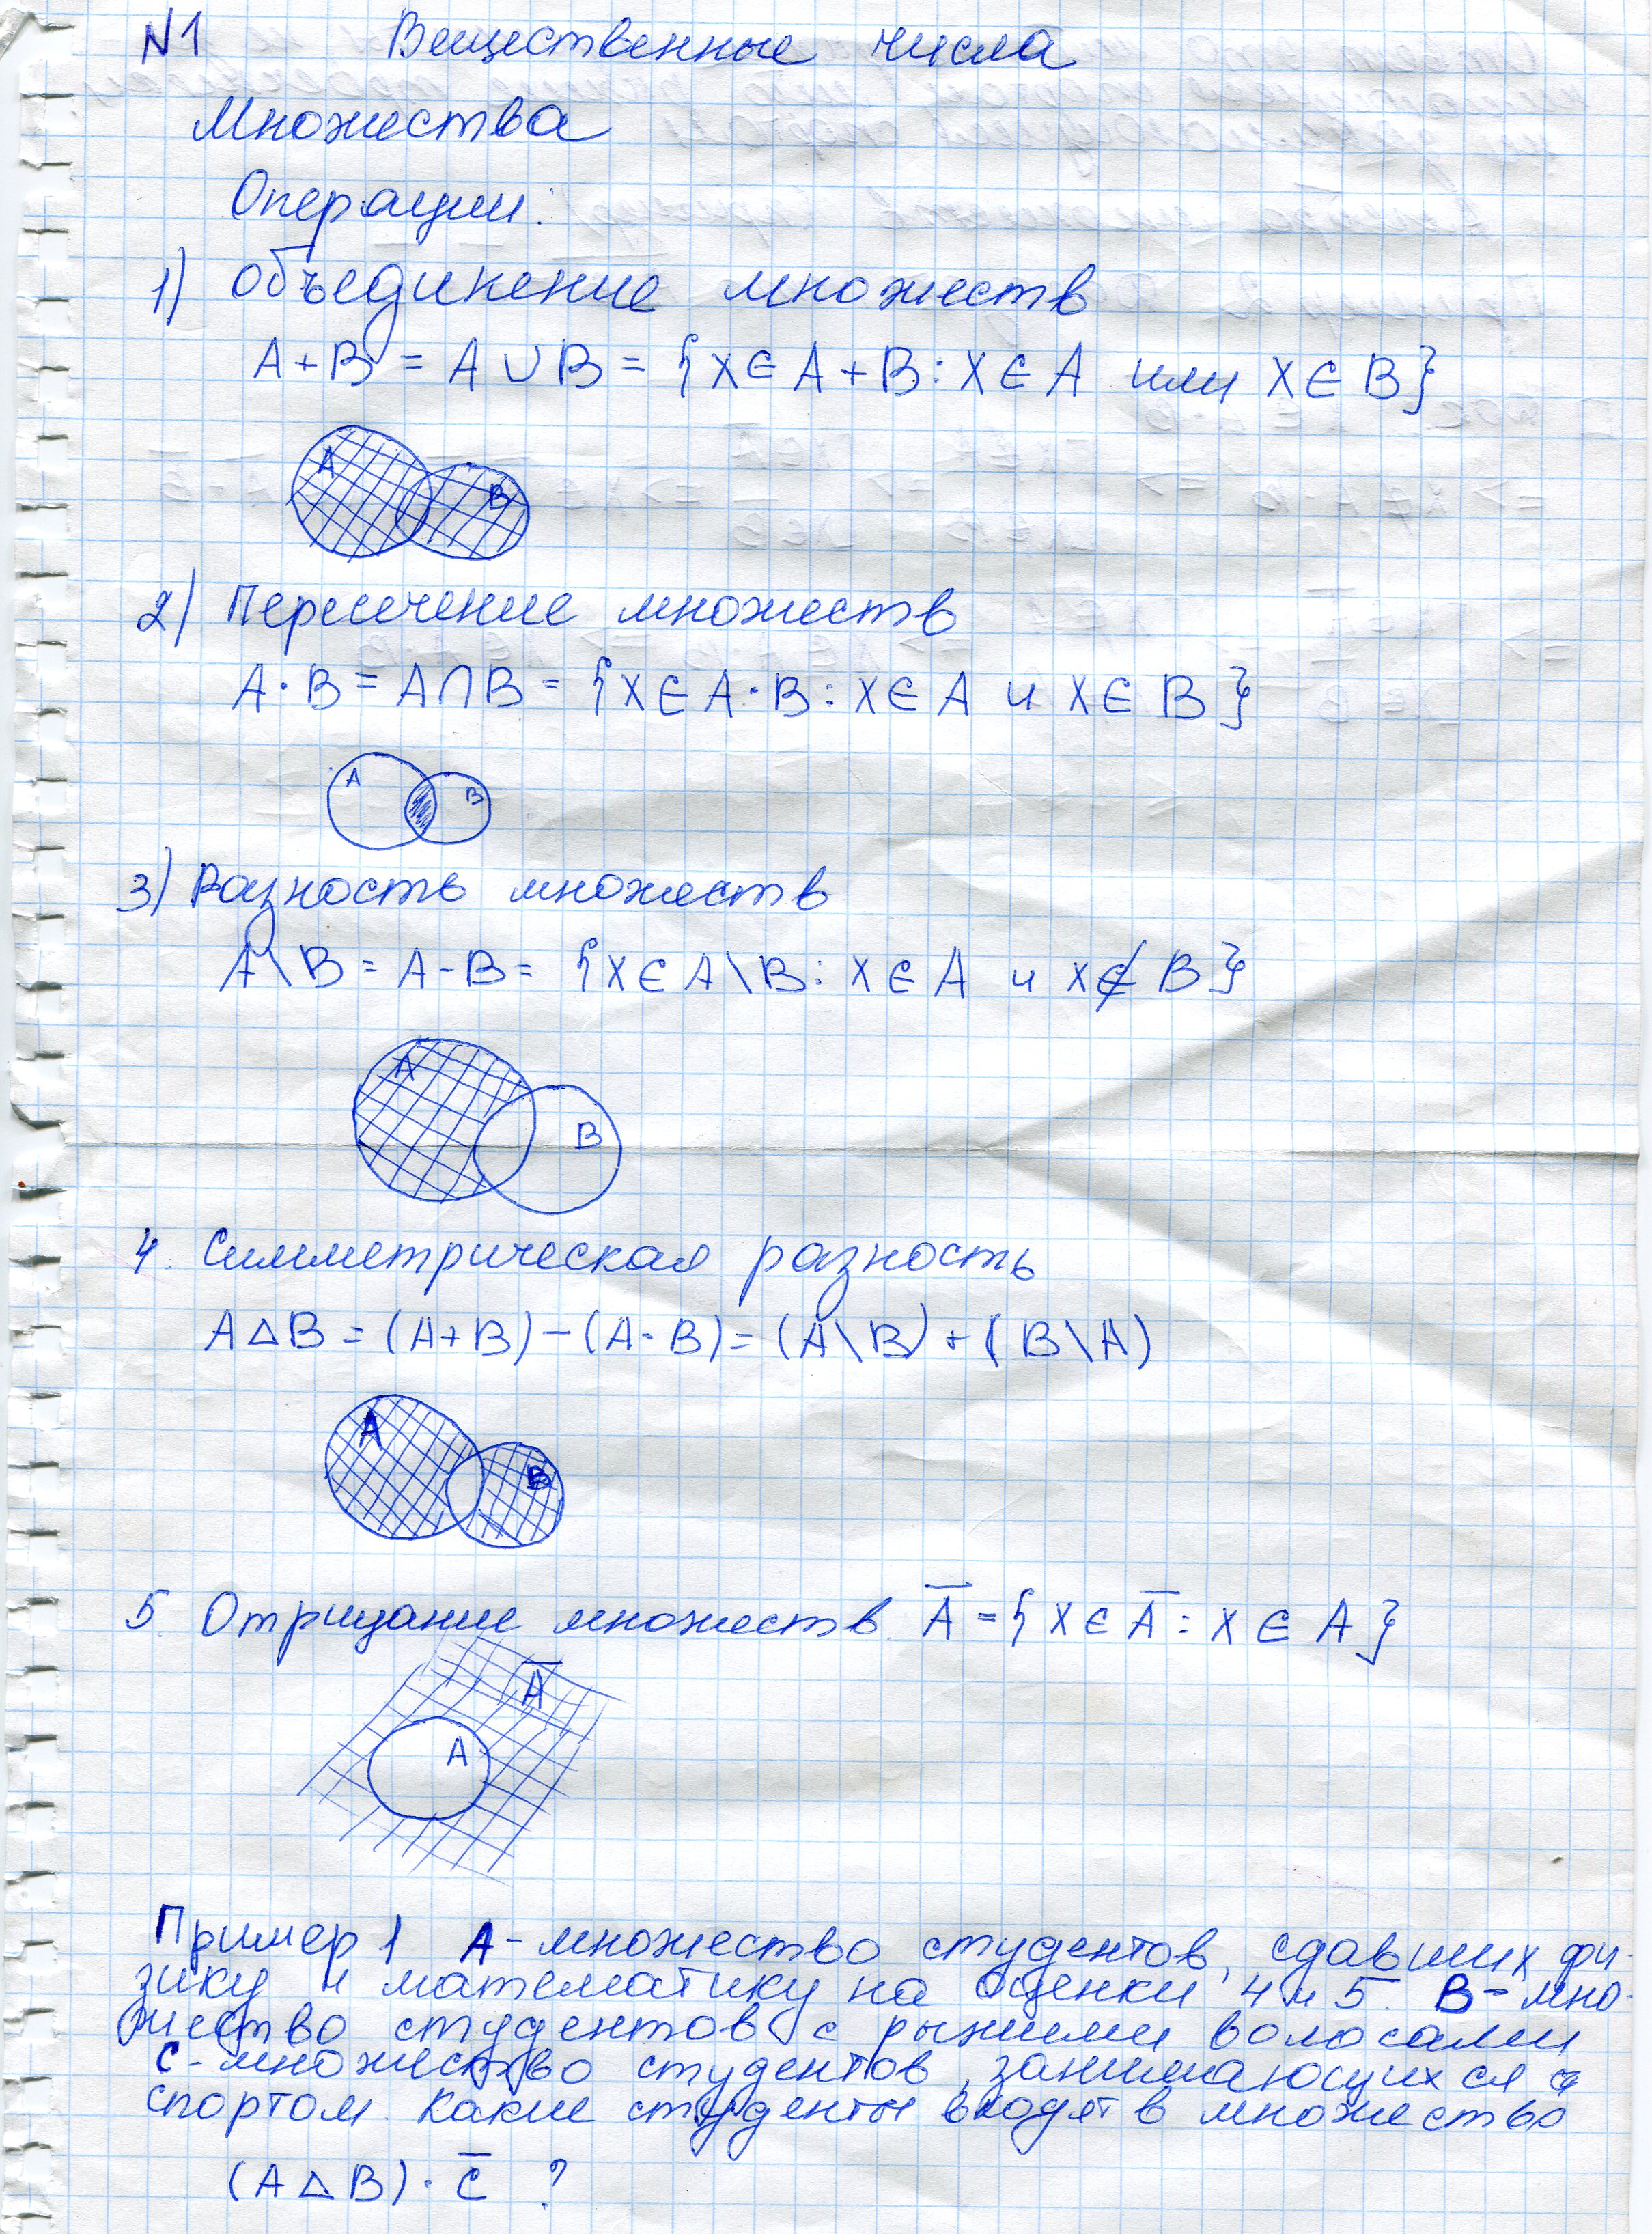 N1 Вещественные числа
Множества
Операции:
1) Объединение множеств
A+B = A∪B = {x∈A+B: x∈A или x∈B}
A B
2) Пересечение множеств
A·B = A∩B = {x∈A·B: x∈A и x∈B}
A B
3) Разность множеств
A\B = A-B = {x∈A\B: x∈A и x∉B}
A B
4. Симметрическая разность
A△B = (A+B)-(A·B) = (A\B)+(B\A)
A B
5. Отрицание множеств. A̅ = {x∈A̅: x∈A}
A̅
A
Пример 1 A-множество студентов, сдавших фи-
зику и математику на оценки 4 и 5. B-мно-
жество студентов с рыжими волосами
C-множество студентов, занимающихся с
спортом. Какие студенты входят в множество
(A△B)·C̅ ?